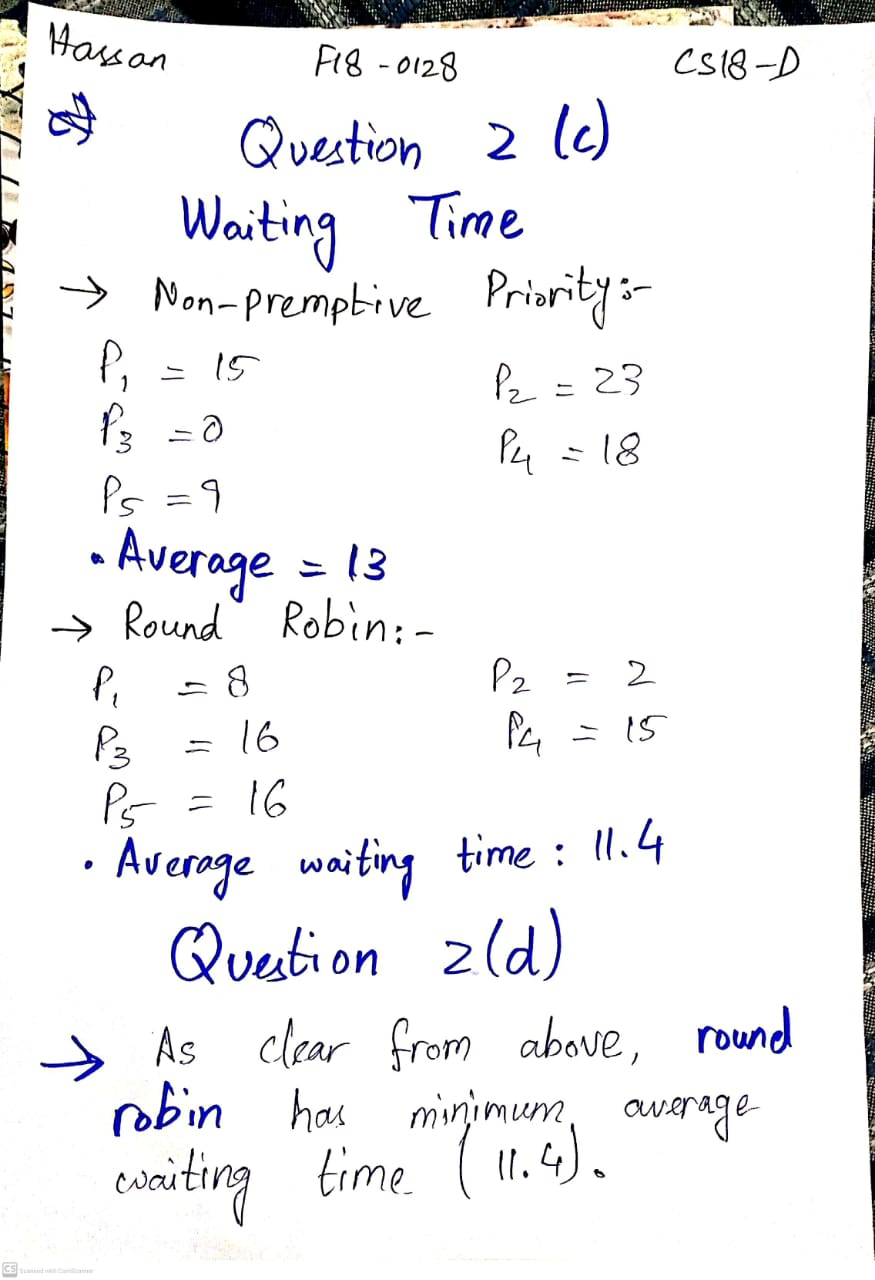 Hassan F18-0128 CS18-D
Question 2 (c)
Waiting Time
→ Non-premptive Priority:-
P1 = 15 P2 = 23
P3 = 0 P4 = 18
P5 = 9
• Average = 13
→ Round Robin:-
P1 = 8 P2 = 2
P3 = 16 P4 = 15
P5 = 16
• Average waiting time : 11.4
Question 2(d)
→ As clear from above, round
robin has minimum average
waiting time (11.4).
CS Scanned with CamScanner